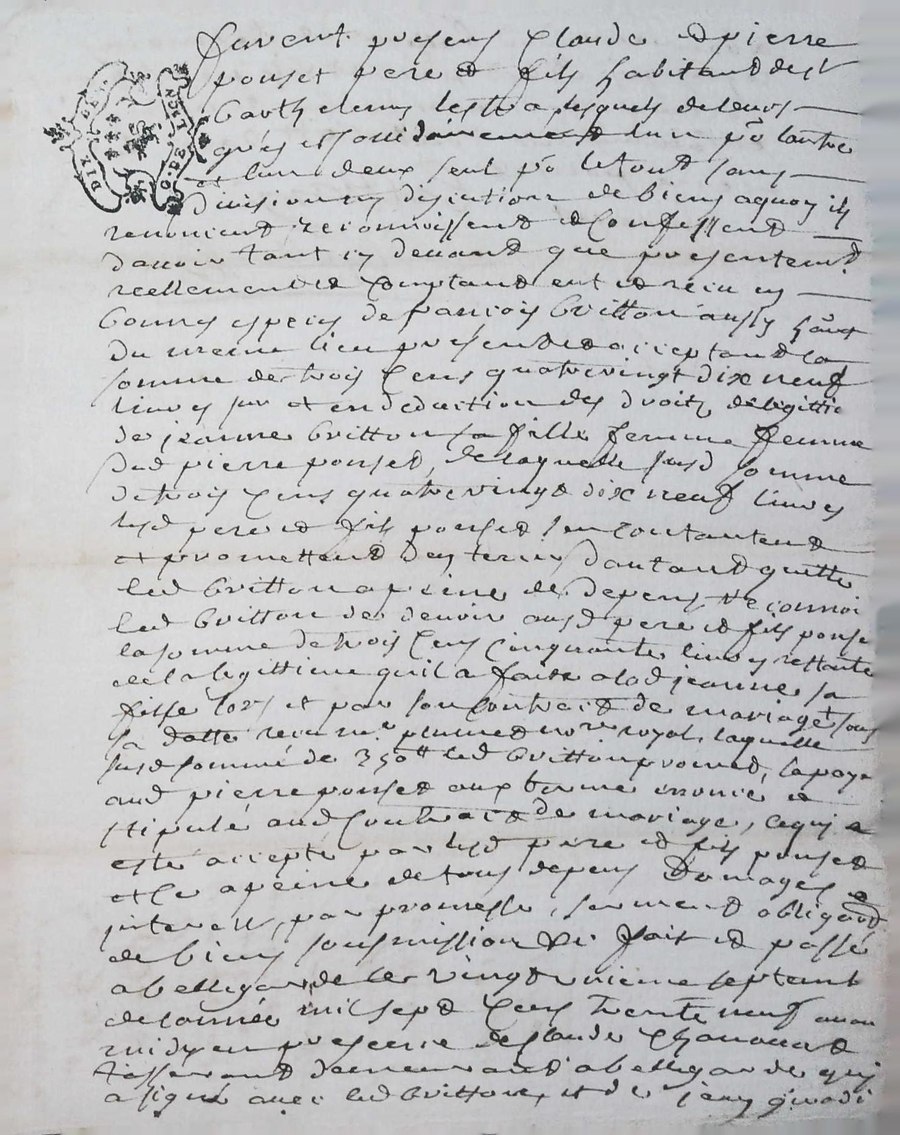 furent presens Claude et pierre
ponset pere et fils habitand de st
barthelemy lestra lesquels de leurs
grés et sollidairement lun po lautre
et lun deux seul po le tout sans
division ny discution de biens aquoy ils
renoncent reconnoissent et confessent
davoir tant cy devand que presentemt
reellement et comptand eut et receu en
bonnes especes de francois britton aussy hand
du meme lieu present et acceptand la
somme de trois cens quatre vingt dix neuf
livres sur et en deduction des droits de legitti
de jeanne britton sa fille femme femme
dud pierre ponset, de laquelle susd somme
de trois cens quatre vingt dix neuf livres
lesd pere et fils ponset sen contantent
et promettent den tenir dautand quitte
led britton a peine de depens reconnoi
led britton de devoir ausd pere et fils ponse
la somme de trois cens cinquante livres restante
de la legittime quil a faite a lad jeanne sa
fille lors et par son contrait de mariage sous
sa datte receu me nore royal, laquelle
susd somme de 350tt led britton promet, la paye
aud pierre ponset aux terme enoncé et
stipulé aud contrait de mariage, ce qui a
esté accepté par lesd pere et fils ponset
et ce a peine de tous depens domages et
interests, par promesse, serment obligaon
de biens soumission &c fait et passé
a bellegarde le vingt septamb
de lannée mil sept cens trente neuf avan
midy en presence de Claude
tisserand demeurand a bellegarde qui
a signé avec led britton, et de jean